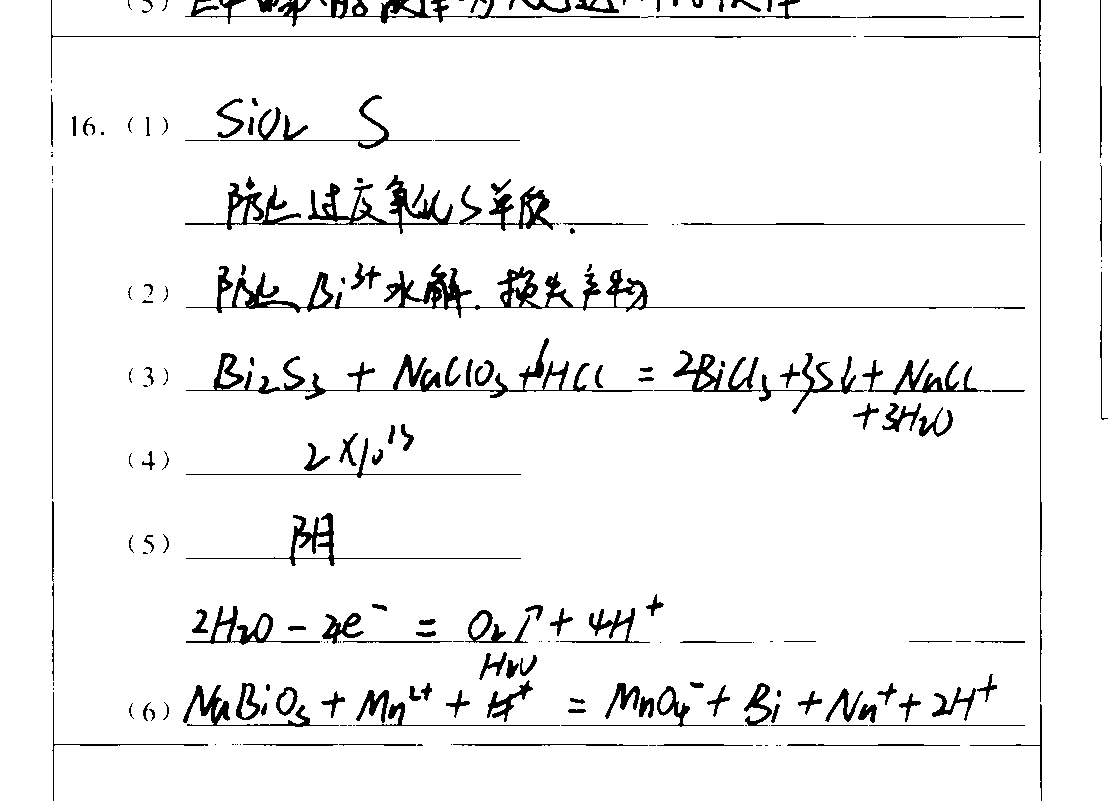 (5)
16. (1) SiO₂ S
防止过度氧化S单质.
(2) 防止Bi³⁺水解.损失产物
(3) Bi₂S₃ + NaClO₃ + 6HCl = 2BiCl₃ + 3S↓ + NaCl
+3H₂O
(4) 2×10¹³
(5) 阴
2H₂O - 4e⁻ = O₂↑ + 4H⁺
H₂O
(6) NaBiO₃ + Mn²⁺ + = MnO₄⁻ + Bi + Na⁺ + 2H⁺